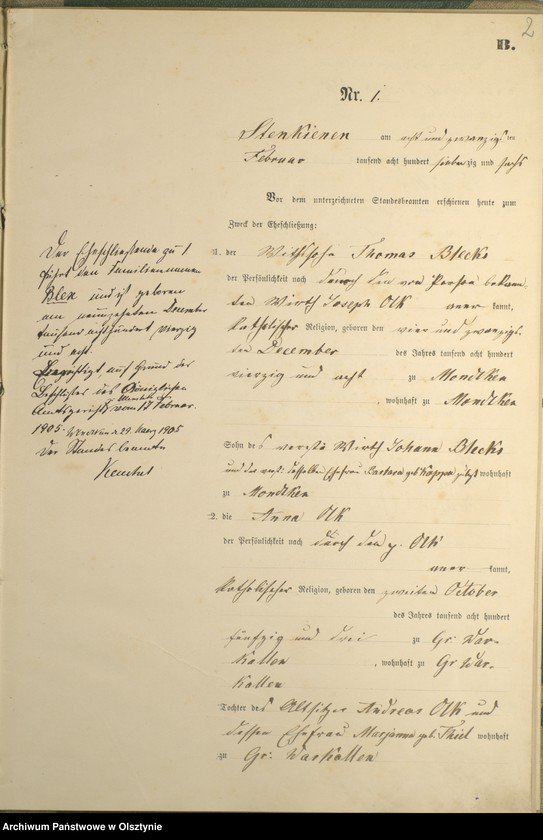 2
B.
Nr. 1.
Stenkienen am acht und zwanzigs ten
Februar tausend acht hundert sieben zig und sechs
Vor dem unterzeichneten Standesbeamten erschienen heute zum
Zweck der Eheschließung:
1. der Wirthssohn Thomas Blecks
der Persönlichkeit nach durch den von Person bekann-
ten Wirth Joseph Olk aner kannt,
katholischer Religion, geboren den vier und zwanzigs-
ten December des Jahres tausend acht hundert
vierzig und acht zu Mondtken
, wohnhaft zu Mondtken
Sohn des verstb Wirth Johann Blecks
und der desselben Ehefrau Barbara geb wohnhaft
zu Mondtken
2. die Anna Olk
der Persönlichkeit nach durch den p. Olk
aner kannt,
katholischer Religion, geboren den zweiten October
des Jahres tausend acht hundert
fünfzig und drei zu Gr: War-
kallen , wohnhaft zu Gr War-
kallen
Tochter des Altsitzer Andreas Olk und
dessen Ehefrau Marianna geb. Thiel wohnhaft
zu Gr: Warkallen
Der Eheschliessende zu 1
führt den Familiennamen
Blex und ist geboren
am neunzehnten December
tausend achthundert vierzig
und acht.
Berichtigt auf Grund des
Beschlusses des Königlichen
Amtsgerichts vom 17 Februar
1905. 29. März 1905
Der Standesbeamte
Archiwum Państwowe w Olsztynie